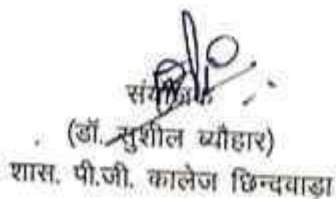 संयोजक
(डॉ. सुशील ब्यौहार)
शास. पी.जी. कालेज छिन्दवाड़ा